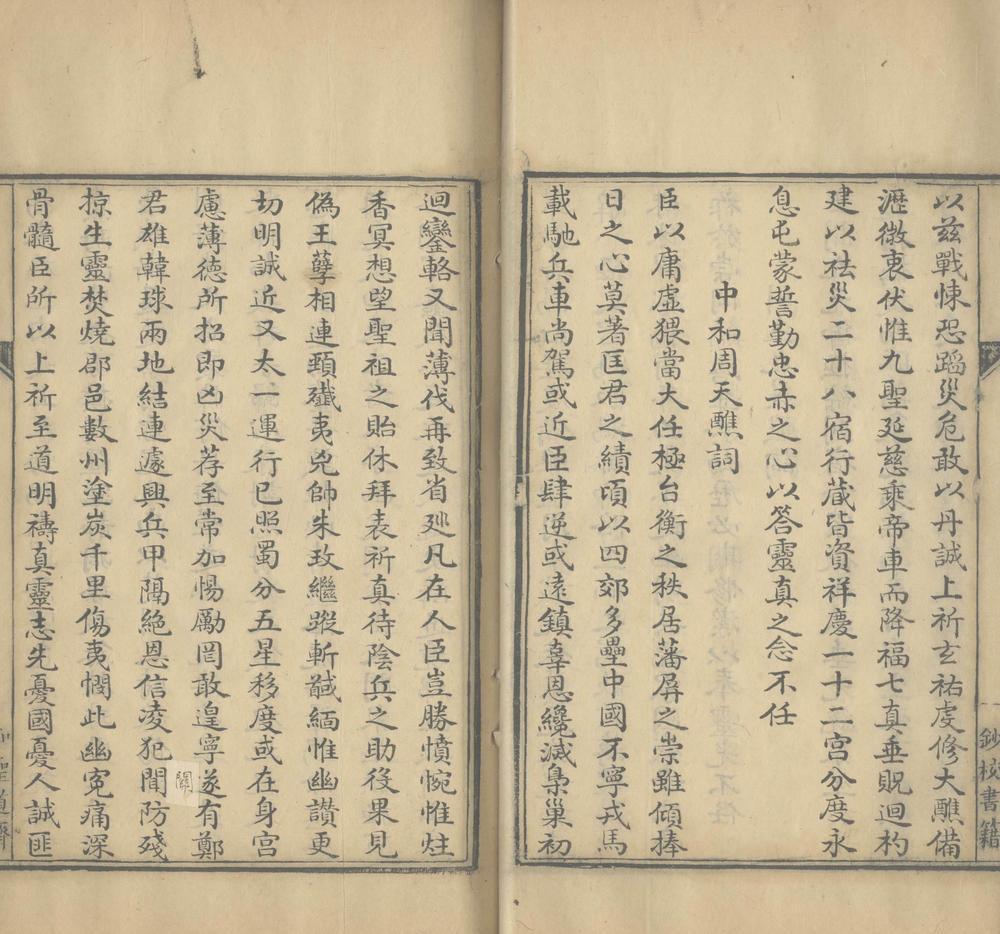 以兹戰悚恐蹈災危敢以丹誠上祈玄祐虔修大醮備
瀝微衷伏惟九聖延慈乘帝車而降福七真垂貺迴杓
建以祛災二十八宿行藏皆資祥慶一十二宫分度永
息屯蒙誓勤忠赤之心以答靈真之念不任
中和周天醮詞
臣以庸虛猥當大任極台衡之秩居藩屏之崇雖傾捧
日之心莫著匡君之績頃以四郊多壘中國不寧戎馬
載馳兵車尚駕或近臣肆逆或遠鎮辜恩纔滅梟巢初
迴鑾輅又聞薄伐再致省廵凡在人臣豈勝憤惋惟炷
香冥想望聖祖之貽休拜表祈真待陰兵之助役果見
偽王孽相連頸殲夷兇帥朱玫繼蹤斬馘緬惟幽讃更
切明誠近又太一運行已照蜀分五星移度或在身宫
慮薄德所招即凶災荐至常加惕勵罔敢遑寧遂有鄭
君雄韓球兩地結連遽興兵甲隔絕恩信凌犯閬防殘
掠生靈焚燒郡邑數州塗炭千里傷夷憫此幽寃痛深
骨髓臣所以上祈至道明禱真靈志先憂國憂人誠匪
鈔校書籍
聖道齋
關